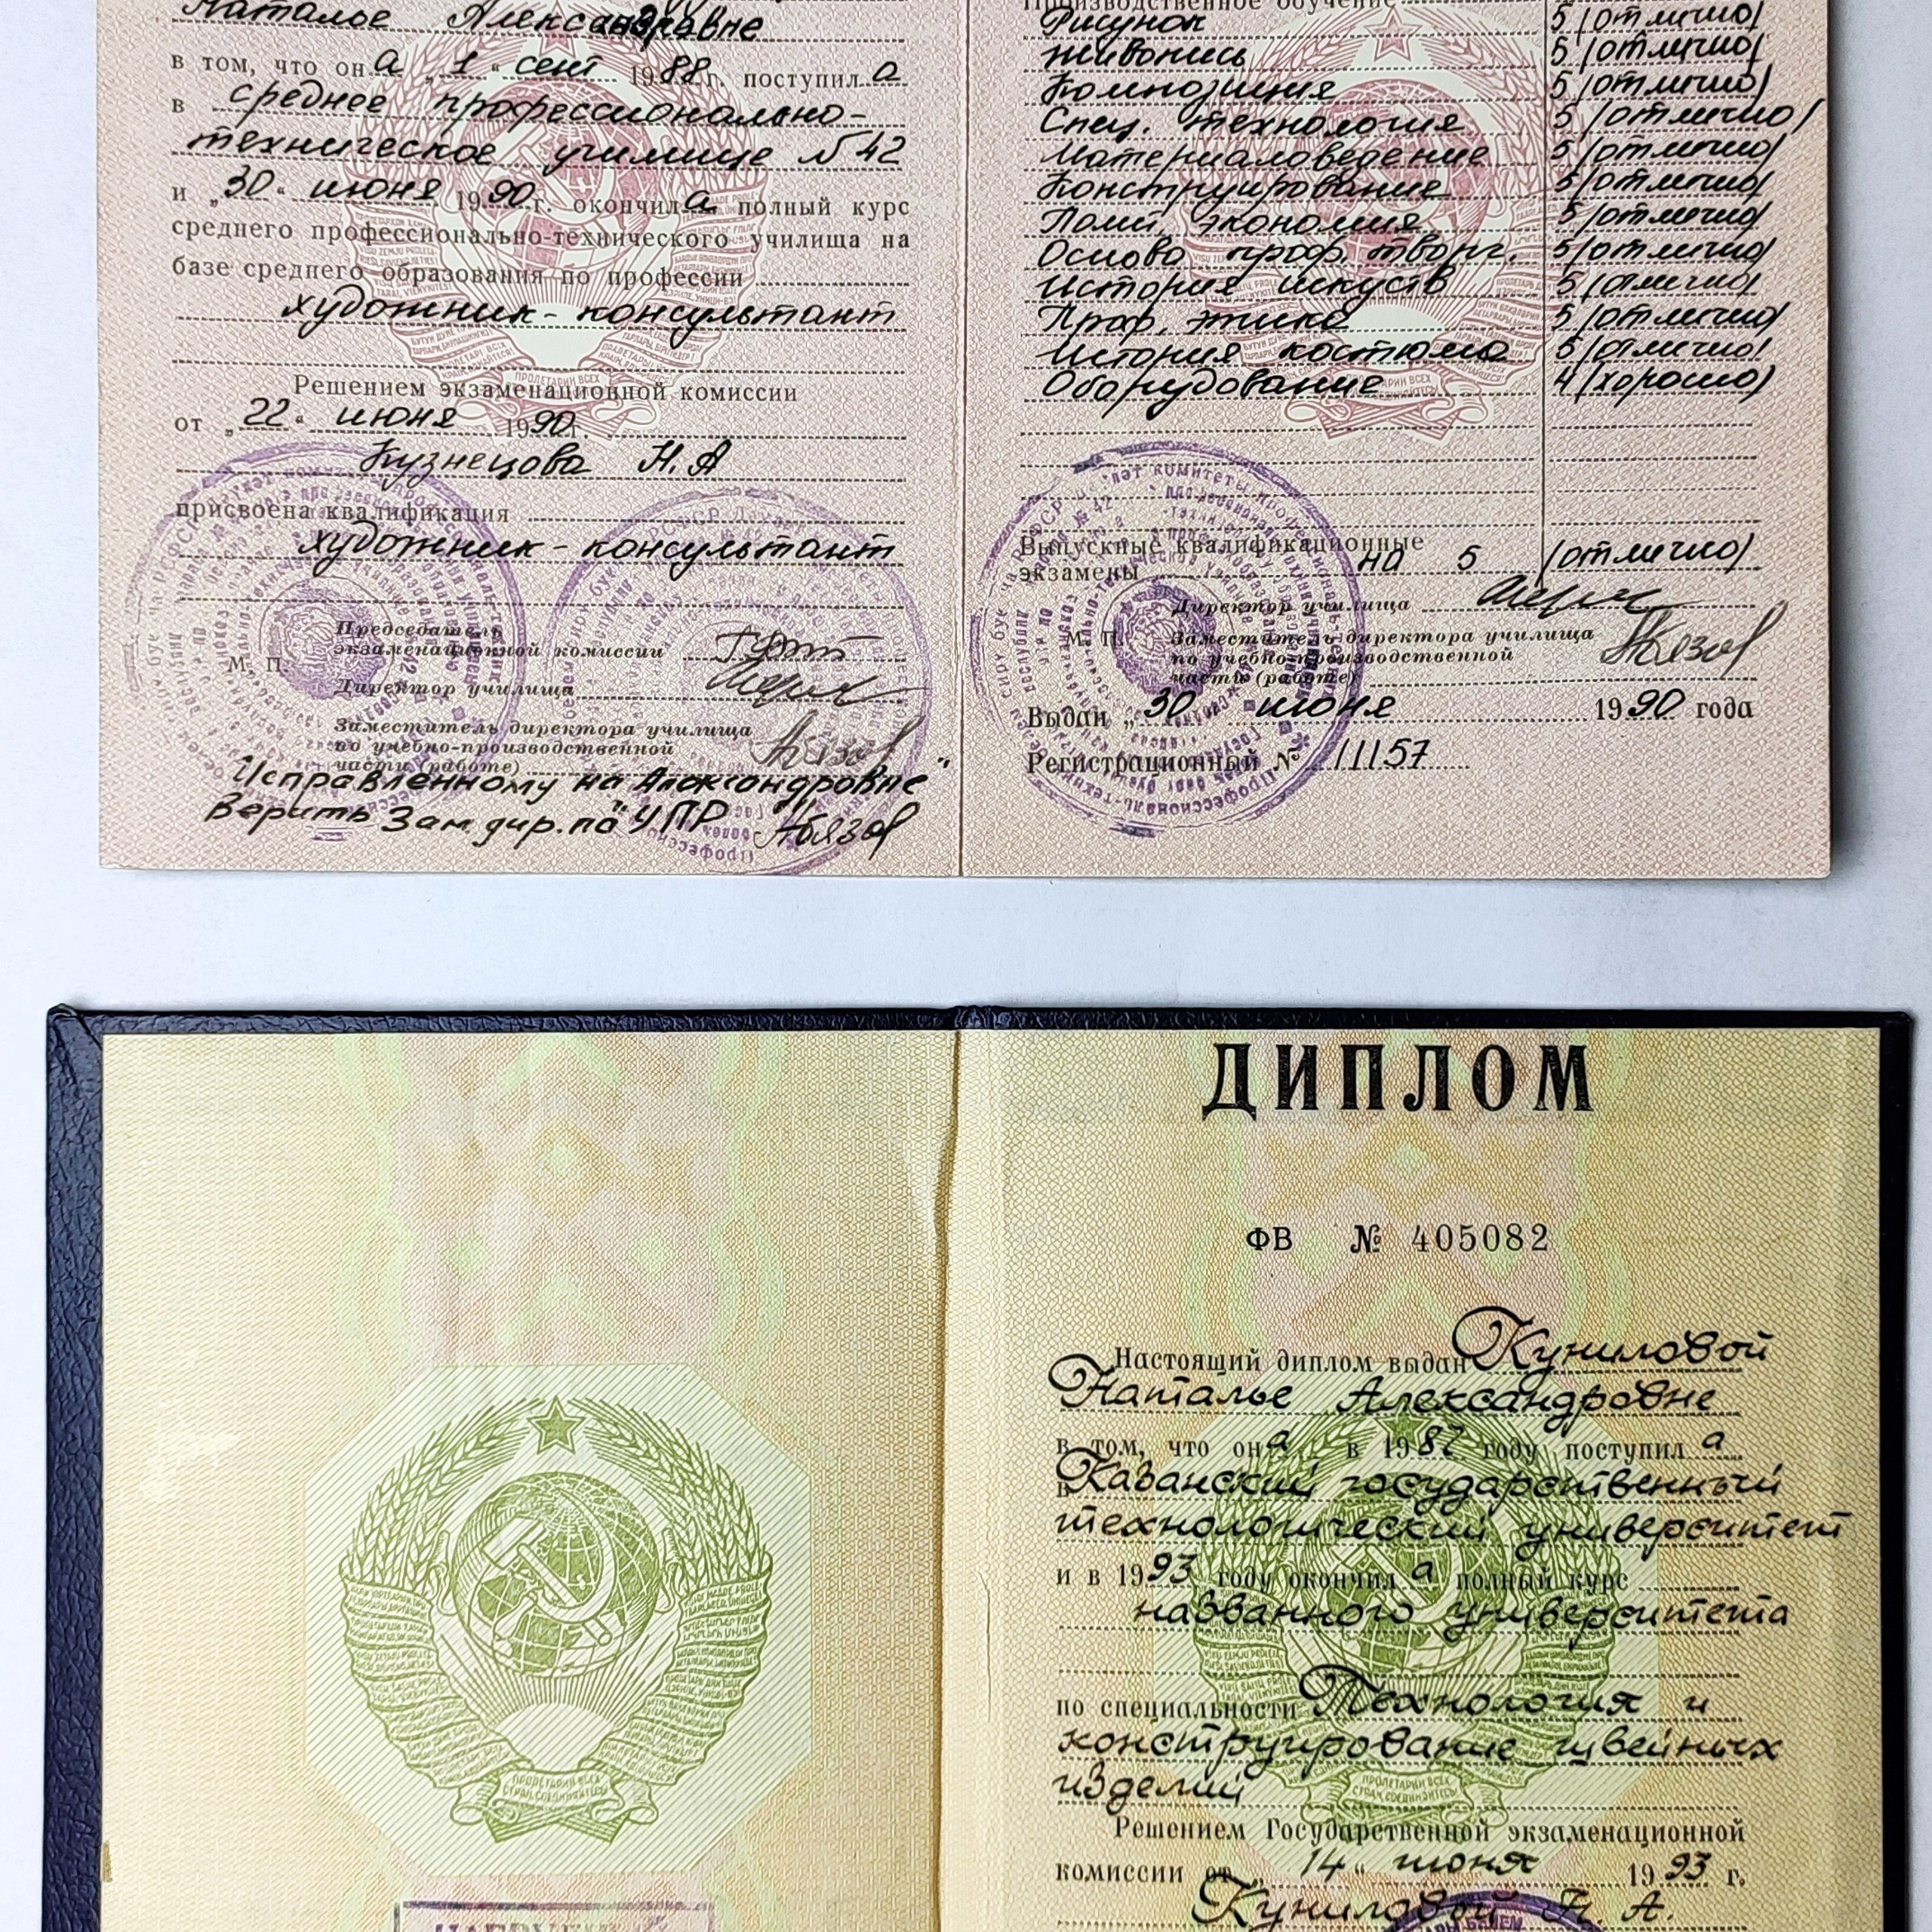 Наталье Александравне
в том, что она „1“ сент 1988 г. поступила
в среднее профессионально-
техническое училище №42
и „30“ июня 1990 г. окончила полный курс
среднего профессионально-технического училища на
базе среднего образования по профессии
художник-консультант
Решением экзаменационной комиссии
от „22“ июня 1990 г.
Кузнецова Н.А
присвоена квалификация
художник-консультант
Председатель
экзаменационной комиссии
М. П.
Директор училища
Заместитель директора училища
по учебно-производственной
части (работе)
Исправленному на „Александровне“
Верить Зам. дир. по УПР
Производственное обучение
Рисунок 5 (отлично)
Живопись 5 (отлично)
Композиция 5 (отлично)
Спец. технология 5 (отлично)
Материаловедение 5 (отлично)
Конструирование 5 (отлично)
Полит. экономия 5 (отлично)
Основа проф. творч. 5 (отлично)
История искуств 5 (отлично)
Проф. этика 5 (отлично)
История костюма 5 (отлично)
Оборудование 4 (хорошо)
Выпускные квалификационные
экзамены на 5 (отлично)
Директор училища
М. П. Заместитель директора училища
по учебно-производственной
части (работе)
Выдан „30 июня 1990 года
Регистрационный № 11157
ДИПЛОМ
ФВ № 405082
Настоящий диплом выдан Куниловой
Наталье Александровне
в том, что она в 1987 году поступила
в Казанский государственный
технологический университет
и в 1993 году окончила полный курс
названного университета
по специальности Технология и
конструирование швейных
изделий
Решением Государственной экзаменационной
комиссии от „14“ июня 1993 г.
Куниловой Н. А.
ПРОЛЕТАРИИ ВСЕХ
СТРАН, СОЕДИНЯЙТЕСЬ!